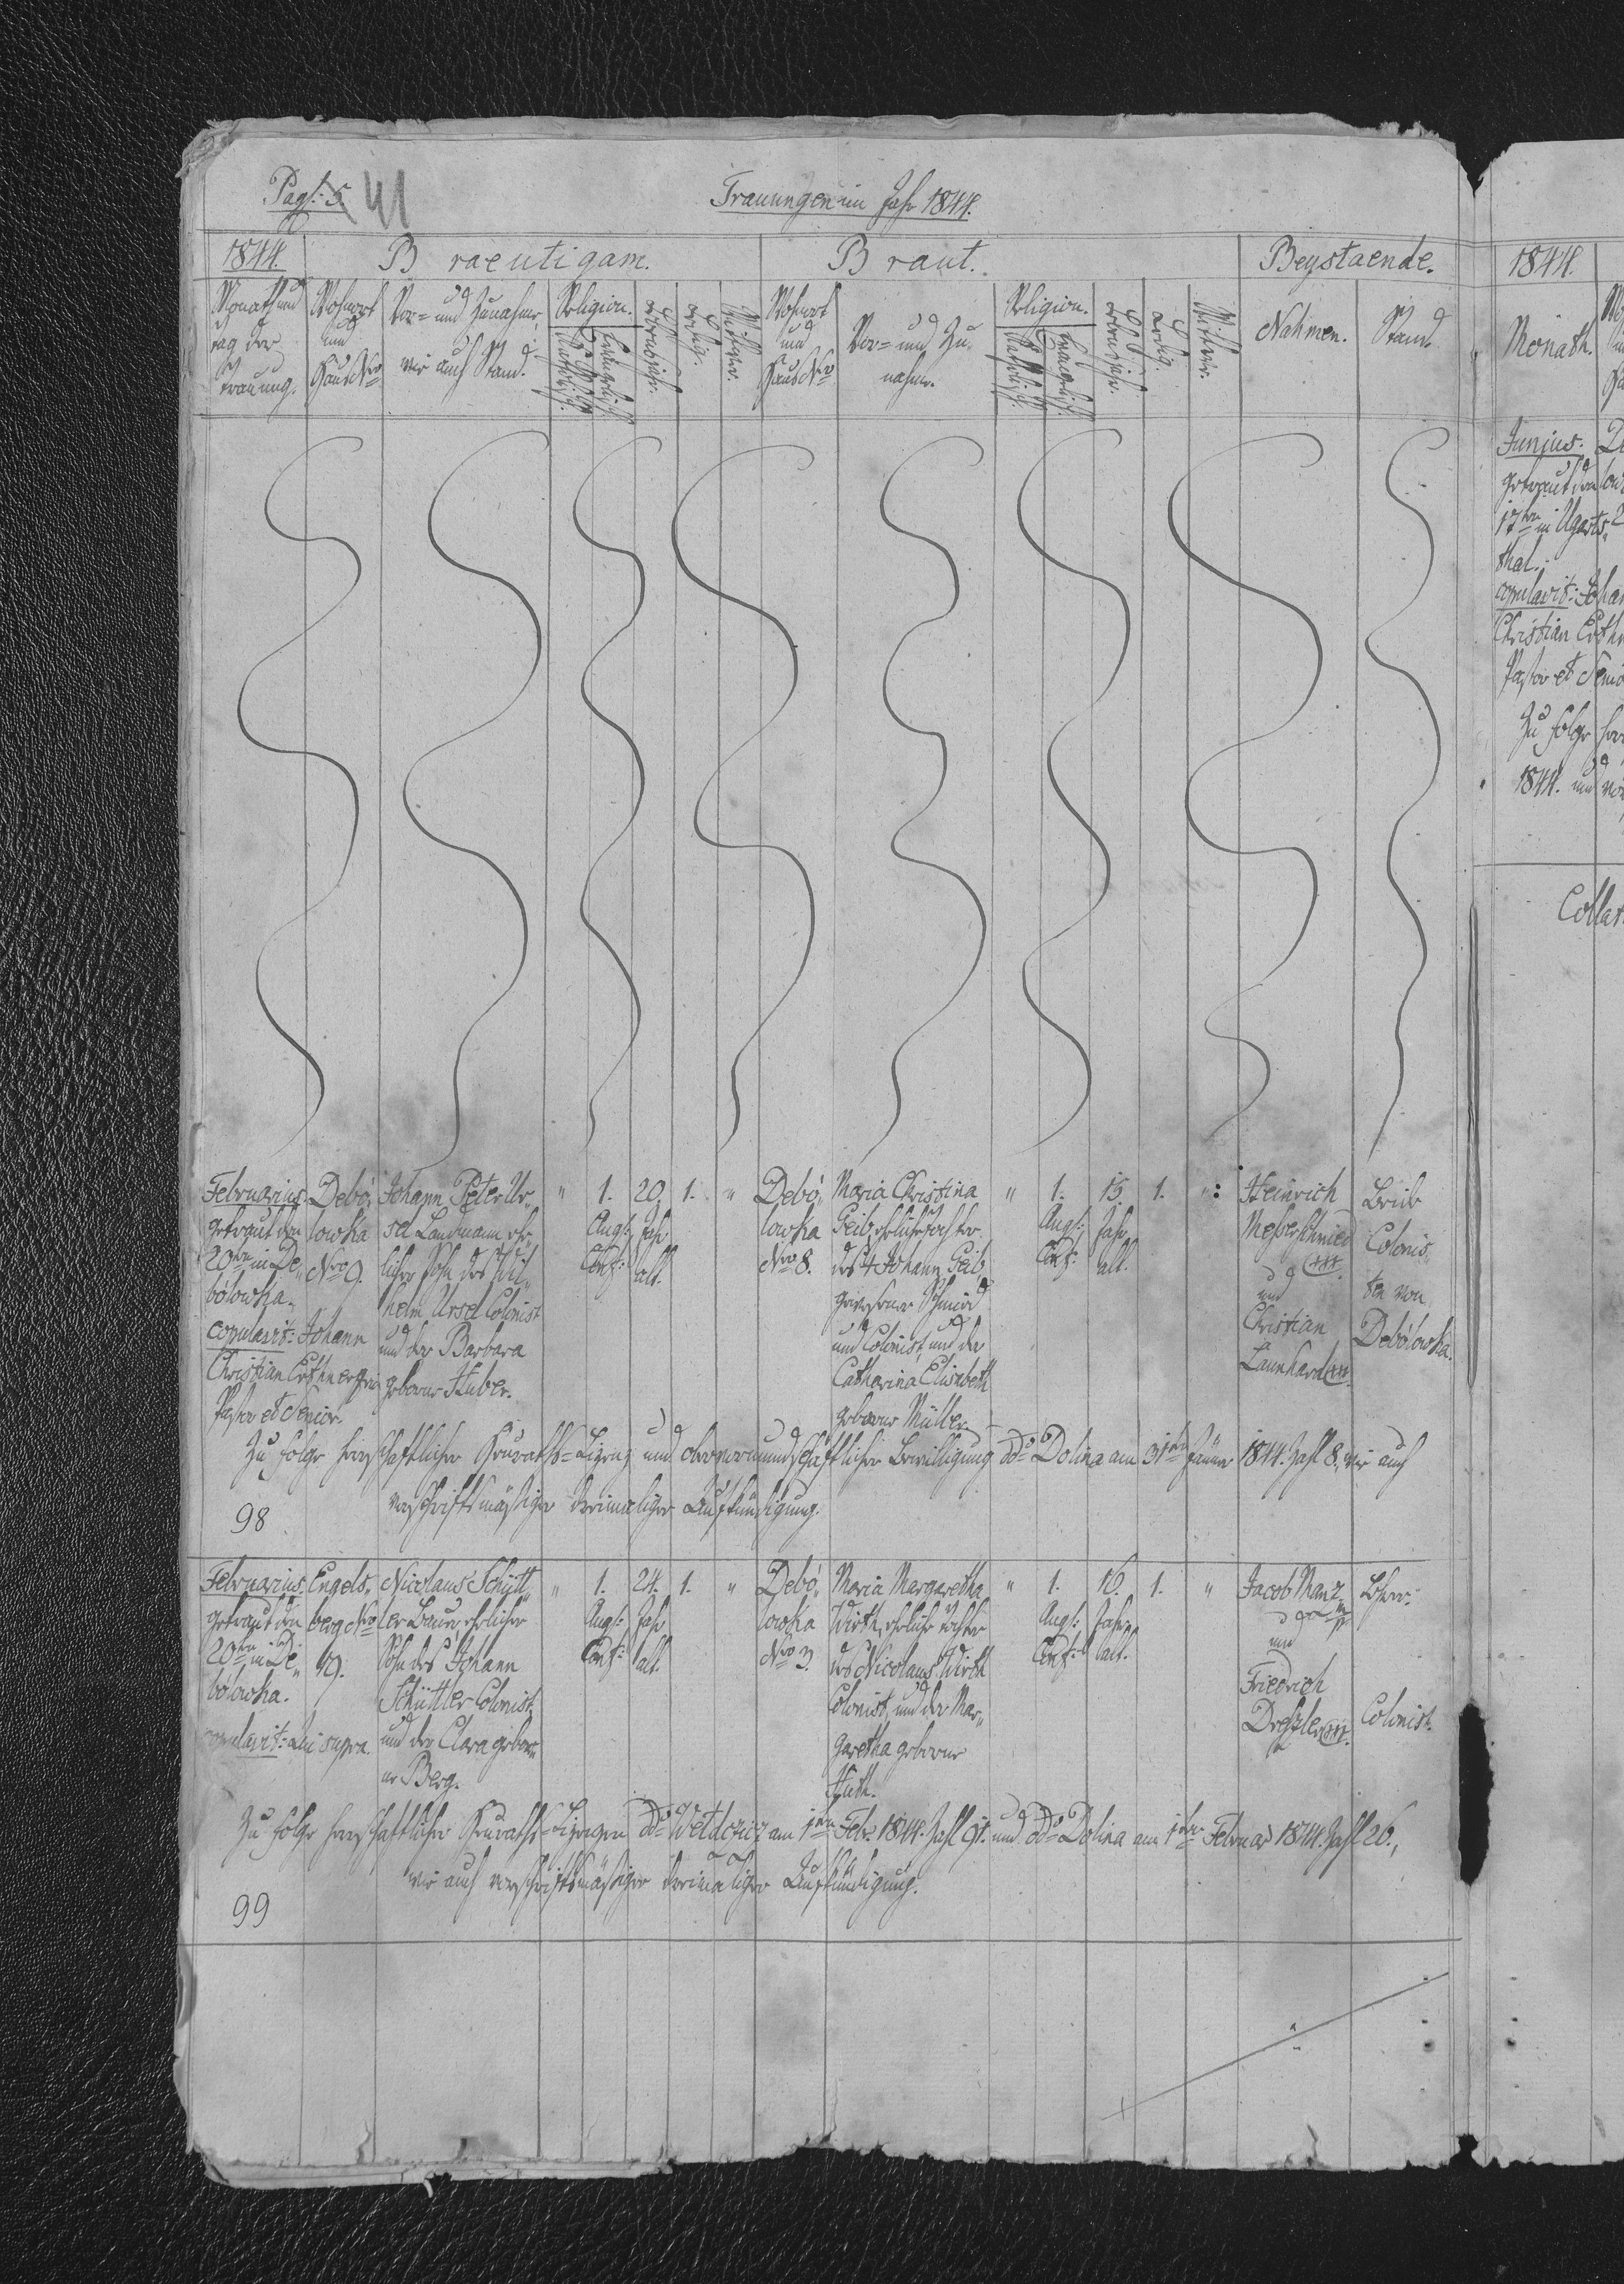 Pag: 5. 41
Trauungen im Jahr 1844.
1844. Braeutigam. Braut. Beystaende.
Monath und
Tag der
Trauung.
Wohnort
und
Haus Nro
Vor- und Zunahme,
wie auch Stand.
Religion.
Katholisch.
Evangelisch.
Lebensjahr.
Ledig.
Wittwer.
Wohnort
und
Haus Nro
Vor- und Zu-
nahme.
Religion.
Katholisch.
Evangelisch.
Lebensjahr.
Ledig.
Wittwe.
Nahmen.
Stand.
Februarius.
getraut den
20ten in De„
bólowka.
copulavit: Johann
Christian Cothner
Pastor et Senior.
Debó„
lowka
Nro 9.
Johann Peter Ur„
sel Landmann ehe„
licher Sohn des Wil„
helm Ursel Colonist
und der Barbara
geborne Huber.
„
1.
Augs:
Conf:
20.
Jahr
alt.
1.
„
Debó„
lowka
Nro 8.
Maria Christina
Geib, eheliche Tochter
des † Johann Geib,
gewesener Schmied
und Colonist, und der
Catharina Elisabeth
geborne Müller.
„
1.
Augs:
Conf:
15.
Jahr
alt.
1.
„
Heinrich
Messerschmied
+++
und
Christian
Launhard +++.
Beide
Colonis„
ten von
Debólowka.
Zu folge herrschaftlicher Heuraths-Lizenz und obervormundschaftlicher Bewilligung ddo Dolina am 31ten Jänner 1844. Zahl 8., wie auch
vorschriftsmäßiger dreimaliger Aufkündigung.
98
Februarius.
getraut den
20ten in De„
bólowka.
copulavit: Qui supra.
Engels„
berg Nro
19.
Nicolaus Schütt„
ler Bauer, ehelicher
Sohn des Johann
Schüttler Colonist,
und der Clara gebor„
ne Berg.
„
1.
Augs:
Conf:
24.
Jahr
alt.
1.
„
Debó„
lowka
Nro 3.
Maria Margaretha
Wirth, eheliche Tochter
des Nicolaus Wirth
Colonist, und der Mar„
garetha geborne
Huth.
„
1.
Augs:
Conf:
16.
Jahr
alt.
1.
„
Jacob Manz
und
Friedrich
Dreßler +++.
Lehrer.
Colonist.
Zu folge herrschaftlicher Heuraths-Lizenzen ddo Weldzicz am 1ten Feb. 1844. Zahl 91. und ddo Dolina am 1ten Februar 1844. Zahl 26.,
wie auch vorschriftsmäßiger dreimaliger Aufkündigung.
99
1844.
Monath.
Junius.
getraut den
17ten in Ugarts„
thal.
copulavit: Johan
Christian Cothn
Pastor et Senio
Zu folge her
1844. und
Collat